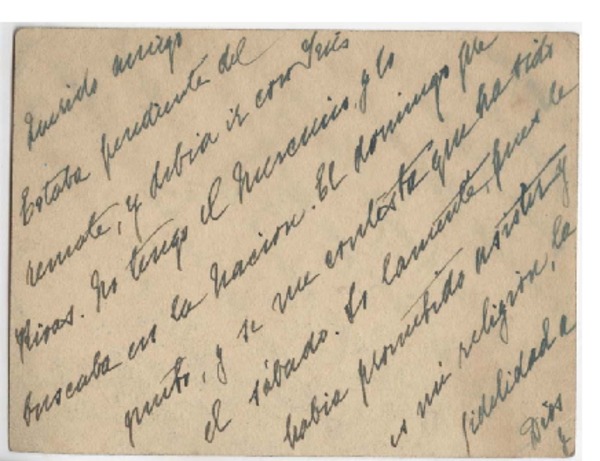 Querido amigo
Estaba pendiente del
remate, y debia ir con Jenis
Rivas. No tengo el Mercurio y lo
buscaba en la Nacion. El domingo pre
gunto, y se me contesta que ha sido
el sábado. Lo lamenté, pues le
habia prometido asistir y
es mi religion, la
fidelidad a
Dios
y